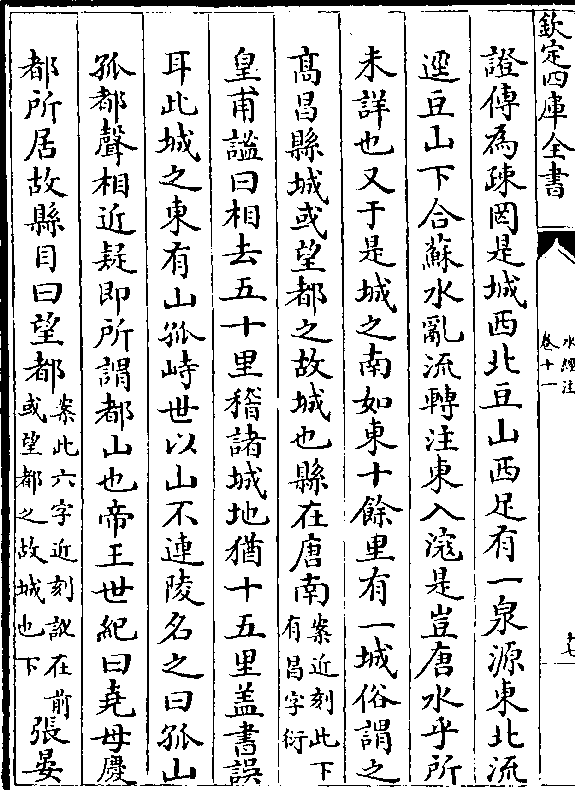 欽定四庫全書
水經注
卷十一
十七
證傳為疎罔是城西北豆山西足有一泉源東北流
逕豆山下合蘇水亂流轉注東入㴾是豈唐水乎所
未詳也又于是城之南如東十餘里有一城俗謂之
髙昌縣城或望都之故城也縣在唐南案近刻此下有昌字衍
皇甫謐曰相去五十里稽諸城地猶十五里盖書誤
耳此城之東有山孤峙世以山不連陵名之曰孤山
孤都聲相近疑即所謂都山也帝王世紀曰堯母慶
都所居故縣目曰望都案此六字近刻訛在前或望都之故城也下張晏